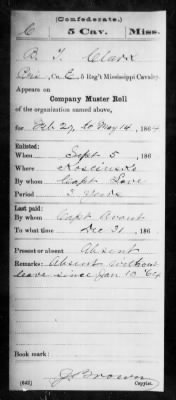 (Confederate.)
C 5 Cav. Miss.
B. T. Clark
Co. E, 5 Reg't Mississippi Cavalry.
Appears on
Company Muster Roll
of the organization named above,
for Feb 29, to May 14, 1864
Enlisted:
When Sept 5, 186
Where Kosciusko
By whom Capt Love
Period 3 years
Last paid:
By whom Capt Avant
To what time Dec 31, 186
Present or absent Absent
Remarks: Absent without
leave since Jan 10 '64
Book mark:
(642) J. Brown
Copyist.